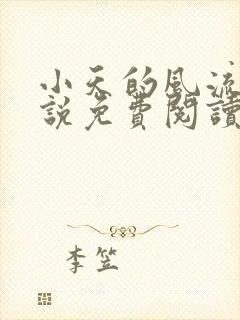 小天的风流
說免費閱讀
李笠